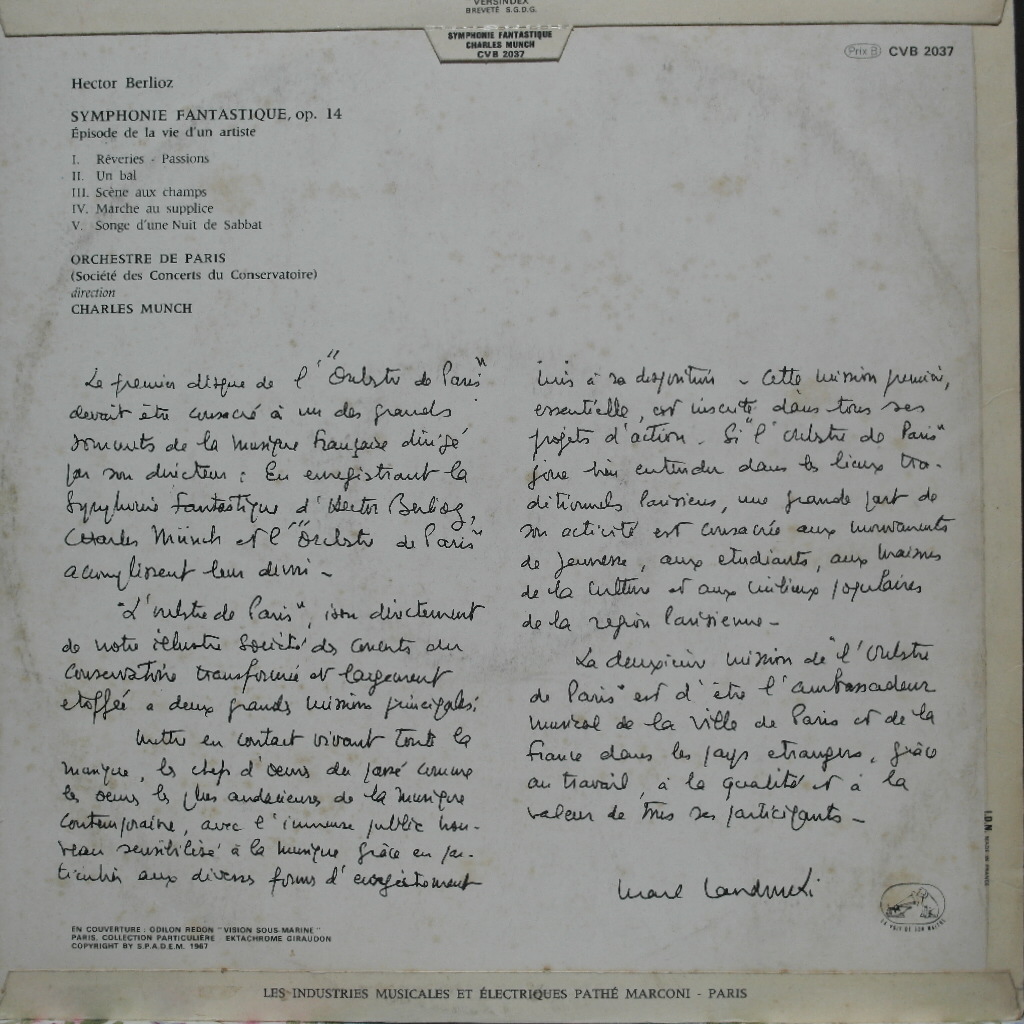 VERSINDEX
BREVETÉ S.G.D.G.
SYMPHONIE FANTASTIQUE
CHARLES MUNCH
CVB 2037
Prix B CVB 2037
Hector Berlioz
SYMPHONIE FANTASTIQUE, op. 14
Épisode de la vie d'un artiste
I. Rêveries - Passions
II. Un bal
III. Scène aux champs
IV. Marche au supplice
V. Songe d'une Nuit de Sabbat
ORCHESTRE DE PARIS
(Société des Concerts du Conservatoire)
direction
CHARLES MUNCH
Le premier disque de l'"Orchestre de Paris"
devait être consacré à un des grands
sommets de la musique française dirigé
par son directeur : En enregistrant la
Symphonie Fantastique d'Hector Berlioz,
Charles Münch et l'"Orchestre de Paris"
accomplissent leur devoir -
"L'orchestre de Paris", issu directement
de notre illustre Société des Concerts du
Conservatoire transformée et largement
etoffée a deux grandes missions principales :
Mettre en contact vivant toute la
musique, les chefs d'oeuvre du passé comme
les oeuvres les plus audacieuses de la musique
contemporaine, avec l'immense public nou-
veau sensibilisé à la musique grâce en par-
ticulier aux diverses formes d'enregistrement
mis à sa disposition - Cette mission première,
essentielle, est inscrite dans tous ses
projets d'action - Si "l'Orchestre de Paris"
joue bien entendu dans les lieux tra-
ditionnels Parisiens, une grande part de
son activité est consacrée aux mouvements
de jeunesse, aux etudiants, aux maisons
de la culture et aux milieux populaires
de la region Parisienne -
La deuxième mission de "l'Orchestre
de Paris" est d'être l'ambassadeur
musical de la ville de Paris et de la
France dans les pays etrangers, grâce
au travail, à la qualité et à la
valeur de tous ses participants -
Marcel Landowski
EN COUVERTURE : ODILON REDON "VISION SOUS-MARINE"
PARIS, COLLECTION PARTICULIÈRE EKTACHROME GIRAUDON
COPYRIGHT BY S.P.A.D.E.M. 1967
LA VOIX DE SON MAITRE
I.D.N. MADE IN FRANCE
LES INDUSTRIES MUSICALES ET ÉLECTRIQUES PATHÉ MARCONI - PARIS